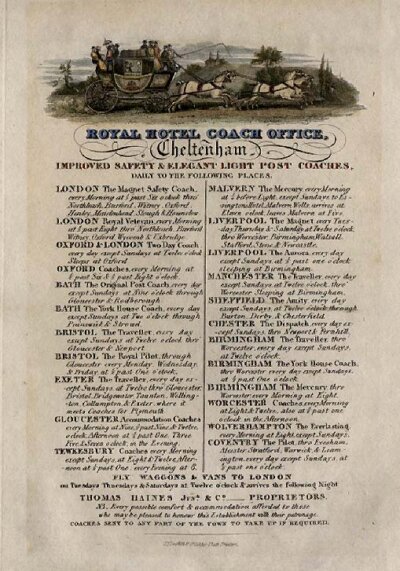 ROYAL HOTEL COACH OFFICE,
Cheltenham
IMPROVED SAFETY & ELEGANT LIGHT POST COACHES,
DAILY TO THE FOLLOWING PLACES.
LONDON The Magnet Safety Coach,
every Morning at ½ past Six o'clock thro'
Northleach, Burford, Witney, Oxford
Henley, Maidenhead, Slough & Hounslow
LONDON Royal Veteran, every Morning
at ½ past Eight thro' Northleach Burford
Witney Oxford Wycomb & Uxbridge.
OXFORD & LONDON Two Day Coach
every day except Sundays at Twelve o'clock
Sleeps at Oxford
OXFORD Coaches, every Morning at
½ past Six & ½ past Eight o'clock.
BATH The Original Post Coach, every day
except Sundays, at Nine o'clock through
Gloucester & Rodborough
BATH The York House Coach, every day
except Sundays at Two o'clock through
Painswick & Stroud
BRISTOL The Traveller, every day
except Sundays at Twelve o'clock thro'
Gloucester & Newport
BRISTOL The Royal Pilot, through
Gloucester every Monday Wednesday,
& Friday, at ¼ past One o'clock.
EXETER The Traveller, every day ex-
cept Sundays at Twelve thro' Gloucester,
Bristol, Bridgewater, Taunton, Welling-
ton, Collumpton & Exeter, where it
meets Coaches for Plymouth
GLOUCESTER Accommodation Coaches
every Morning at Nine, ½ past Nine, & Twelve
o'clock, Afternoon at ½ past One, Three
Five & Seven o'clock in the Evening.
TEWKESBURY Coaches every Morning
except Sundays, at Eight & Twelve, After-
noon at ½ past One every Evening at 6.
MALVERN The Mercury every Morning
at before Eight, except Sundays to
Malvern Wells arrives at
o'clock leaves Malvern at Five.
LIVERPOOL The Magnet every Tues-
day Thursday & Saturday at Twelve o'clock
thro' Worcester Birmingham, Walsall,
Stafford, Stone, & Newcastle.
LIVERPOOL The Aurora, every day
except Sundays at ½ past one o'clock
sleeping at Birmingham.
MANCHESTER The Traveller, every day
except Sundays at Twelve o'clock, thro'
Worcester Sleeping at Birmingham.
SHEFFIELD The Amity, every day
except Sundays, at Twelve o'clock through
Burton, Derby, & Chesterfield
CHESTER The Dispatch, every day ex-
cept Sundays, thro' Newport &
BIRMINGHAM The Traveller, thro'
Worcester, every day except Sundays,
at Twelve o'clock
BIRMINGHAM The York House Coach,
thro' Worcester every day except Sundays.
at ½ past One o'clock.
BIRMINGHAM The Mercury thro'
Worcester every Morning at Eight.
WORCESTER Coaches, every Morning
at Eight & Twelve, also at ½ past one
o'clock in the Afternoon.
WOLVERHAMPTON The Everlasting
every Morning at Eight, except Sundays.
COVENTRY The Pilot, thro' Evesham,
Alcester, Stratford, Warwick, & Leam-
ington, every day except Sundays, at
½ past one o'clock.
FLY WAGGONS & VANS TO LONDON
on Tuesdays Thursdays & Saturdays at Twelve o'clock & arrives the following Night
THOMAS HAINES Junr. & Co. PROPRIETORS.
NB. Every possible comfort & accommodation afforded to those
who may be pleased to honour this Establishment with their patronage.
COACHES SENT TO ANY PART OF THE TOWN TO TAKE UP IF REQUIRED.